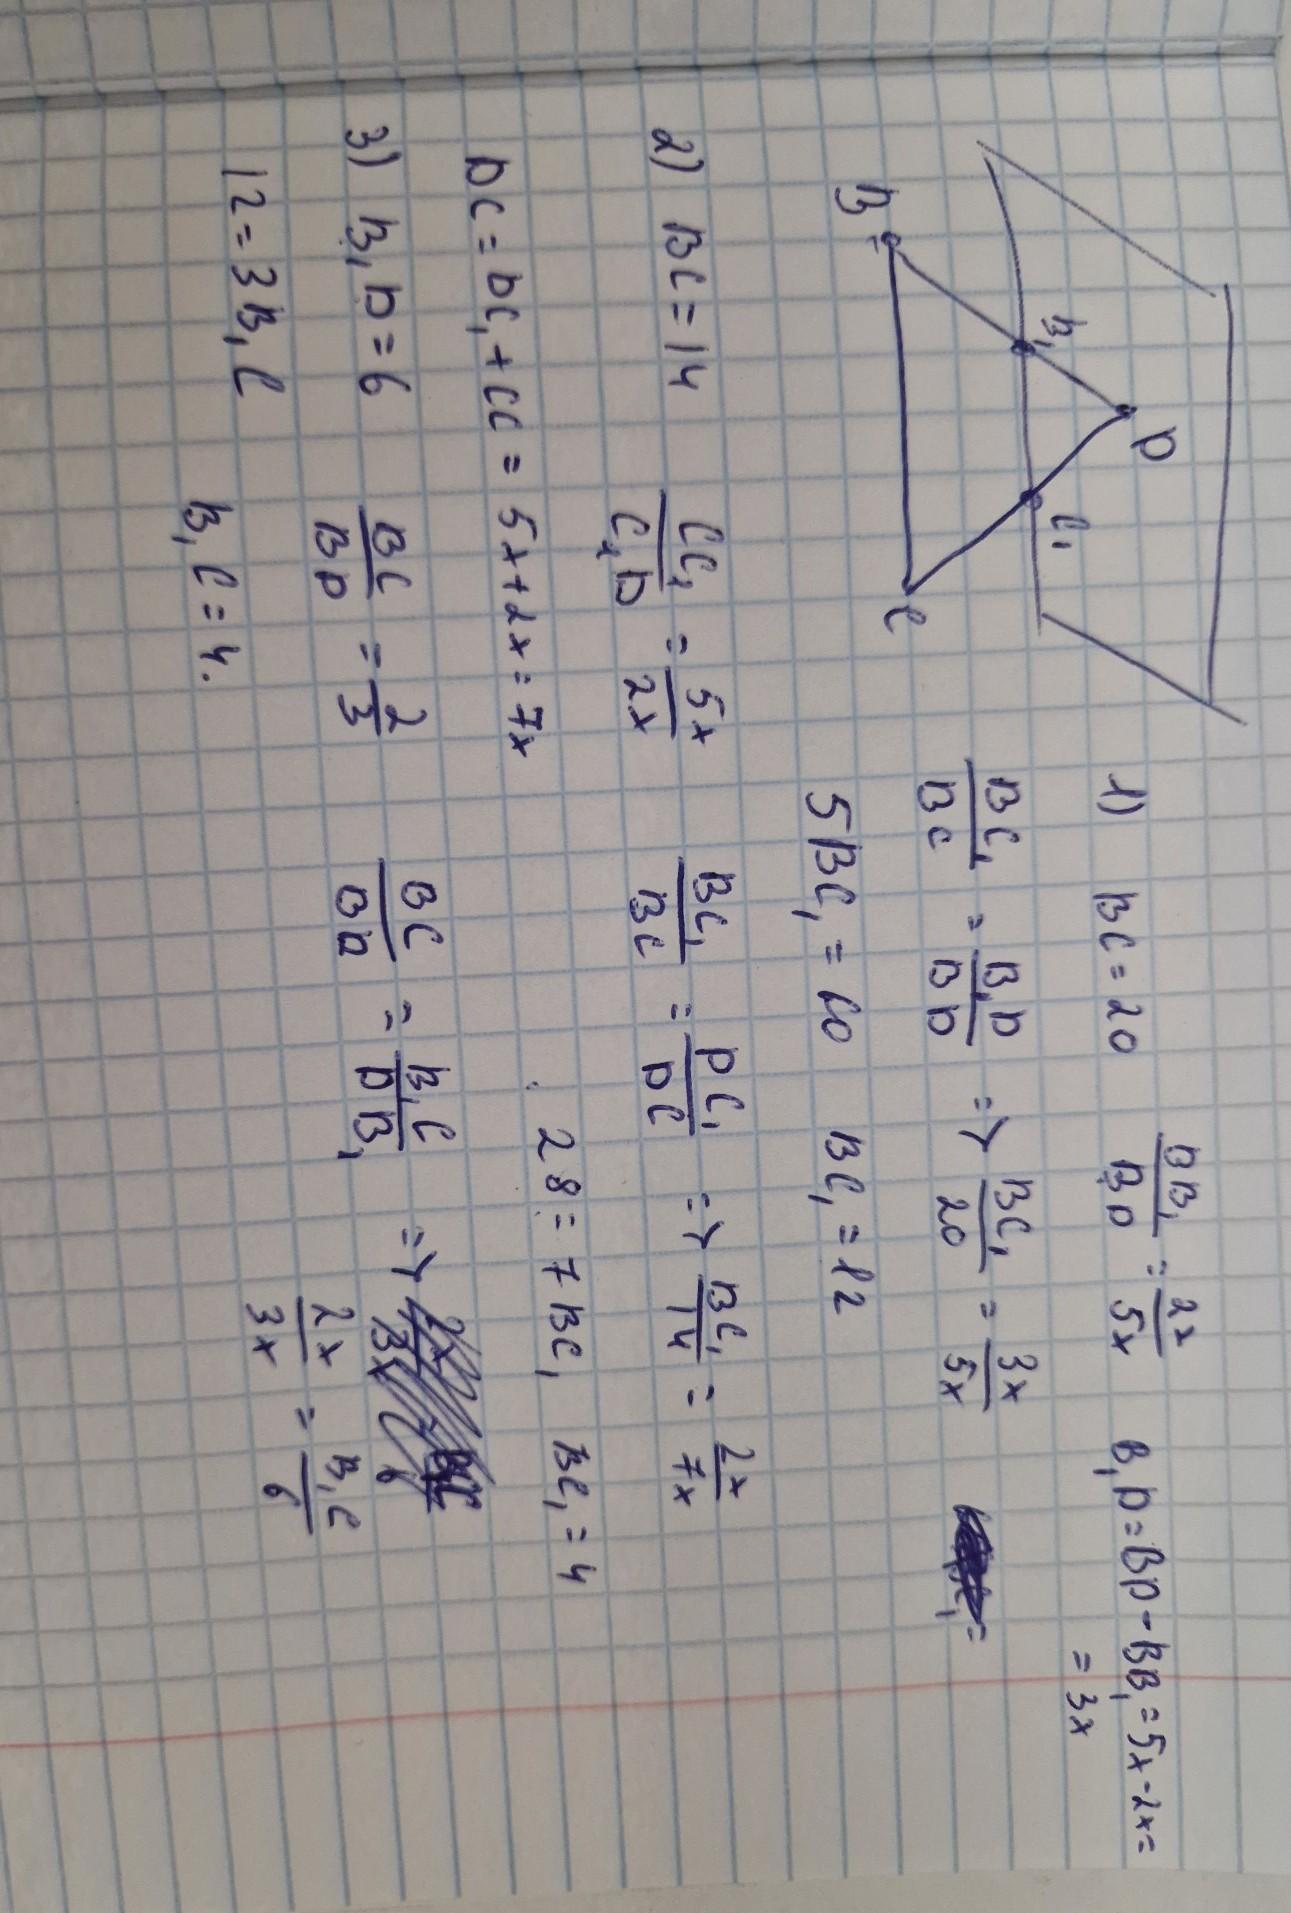 D
B₁ C₁
B C
1) BC = 20 BB₁/BD = 2x/5x B₁D = BD - BB₁ = 5x - 2x =
= 3x
BC₁/BC = B₁D/BD => BC₁/20 = 3x/5x
5BC₁ = 60 BC₁ = 12
2) BC = 14 CC₁/C₁D = 5x/2x BC₁/BC = DC₁/DC => BC₁/14 = 2x/7x
DC = DC₁ + CC = 5x + 2x = 7x 28 = 7BC₁ BC₁ = 4
3) B₁D = 6 BC/BD = 2/3 BC/BD = B₁C/DB₁ =>
2x/3x = B₁C/6
12 = 3B₁C B₁C = 4.